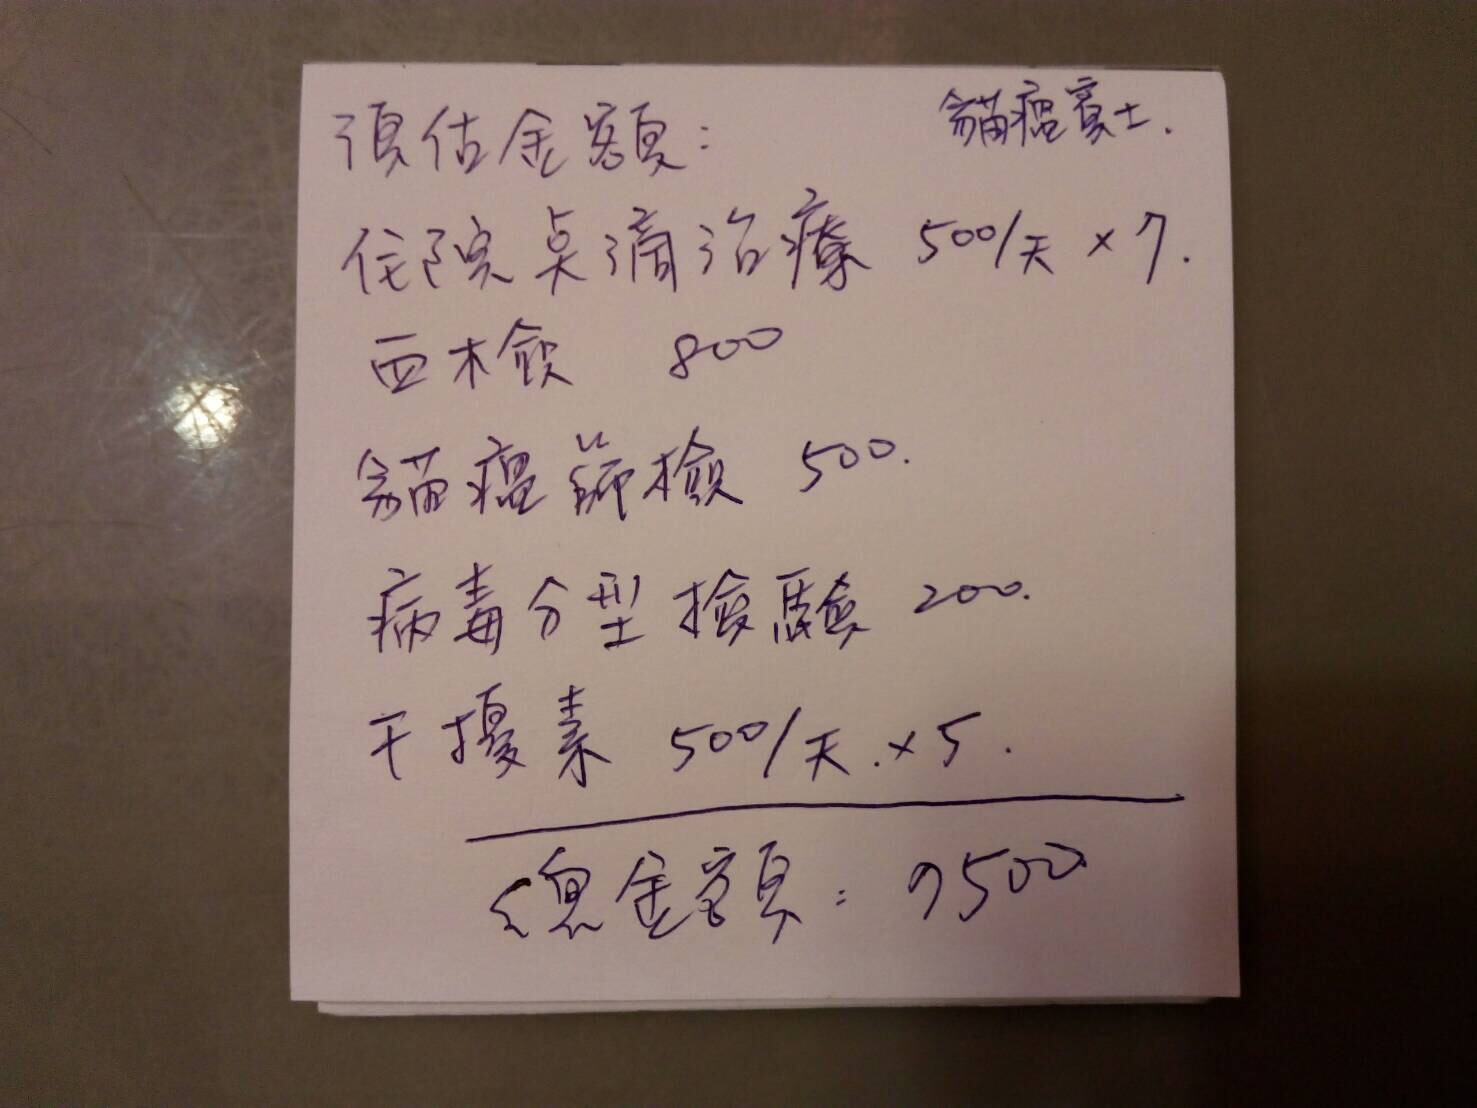 預估金額：
貓瘟賓士.
住院点滴治療 500/天 × 7.
血檢 800
貓瘟篩檢 500.
病毒分型檢驗 200.
干擾素 500/天.×5.
總金額：7500